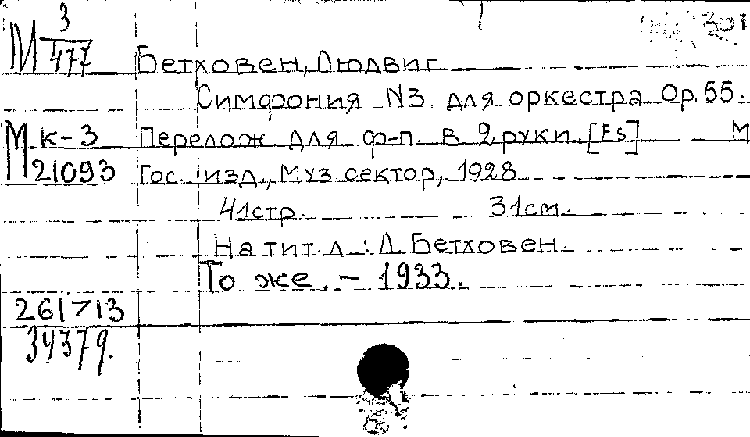 М 3/477
301
Бетховен, Людвиг
Симфония N3 для оркестра Op. 55.
М к-3 Перелож для ф-п в 2 руки. [Es] М
21093 Гос. изд., Муз сектор, 1928
41стр. 31см.
На тит. л.: Л. Бетховен.
То же. - 1933.
261713
34379.